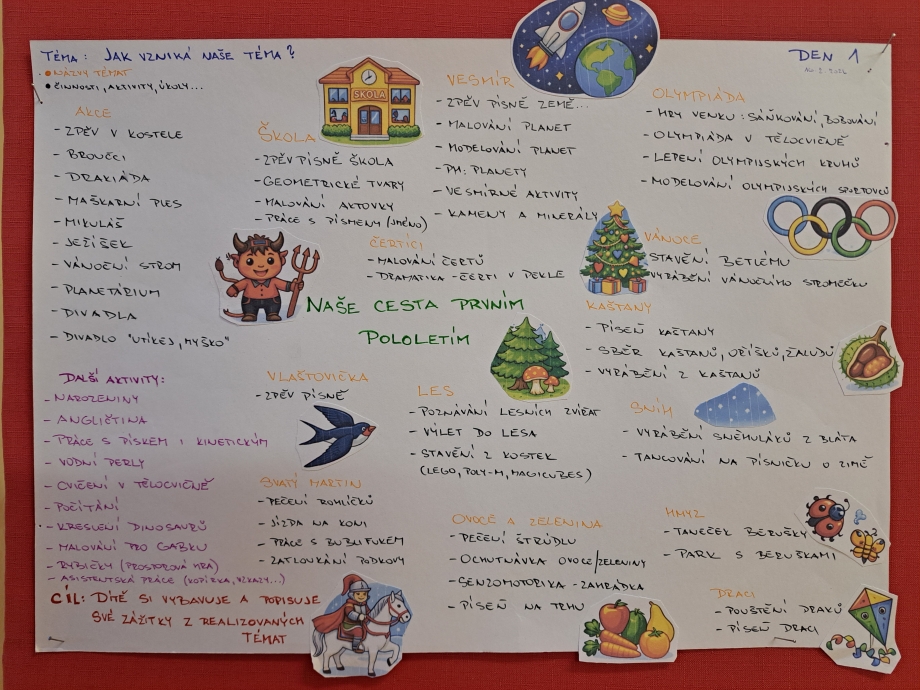 TÉMA: JAK VZNIKÁ NAŠE TÉMA?
• NÁZVY TÉMAT
• ČINNOSTI, AKTIVITY, ÚKOLY...
DEN 1
AKCE
- ZPĚV V KOSTELE
- BROUČCI
- DRAKIÁDA
- MAŠKARNÍ PLES
- MIKULÁŠ
- JEŽÍŠEK
- VÁNOČNÍ STROM
- PLANETÁRIUM
- DIVADLA
- DIVADLO "UTÍKEJ, MYŠKO"
ŠKOLA
ŠKOLA
- ZPĚV PÍSNĚ ŠKOLA
- GEOMETRICKÉ TVARY
- MALOVÁNÍ AKTOVKY
- PRÁCE S PÍSMENY (JMÉNO)
VESMÍR
- ZPĚV PÍSNĚ ZEMĚ...
- MALOVÁNÍ PLANET
- MODELOVÁNÍ PLANET
- PH: PLANETY
- VESMÍRNÉ AKTIVITY
- KAMENY A MINERÁLY
OLYMPIÁDA
- HRY VENKU: SÁŇKOVÁNÍ, BOBOVÁNÍ
- OLYMPIÁDA V TĚLOCVIČNĚ
- LEPENÍ OLYMPIJSKÝCH KRUHŮ
- MODELOVÁNÍ OLYMPIJSKÝCH SPORTOVCŮ
ČERTÍCI
- MALOVÁNÍ ČERTŮ
- DRAMATIKA - ČERTI V PEKLE
VÁNOCE
STAVĚNÍ BETLÉMU
VYRÁBĚNÍ VÁNOČNÍHO STROMEČKU
NAŠE CESTA PRVNÍM
POLOLETÍM
KAŠTANY
- PÍSEŇ KAŠTANY
- SBĚR KAŠTANŮ, OŘÍŠKŮ, ŽALUDŮ
- VYRÁBĚNÍ Z KAŠTANŮ
DALŠÍ AKTIVITY:
- NAROZENINY
- ANGLIČTINA
- PRÁCE S PÍSKEM I KINETICKÝM
- VODNÍ PERLY
- CVIČENÍ V TĚLOCVIČNĚ
- POČÍTÁNÍ
- KRESLENÍ DINOSAURŮ
- MALOVÁNÍ PRO GABKU
- RYBIČKY (PROSTOROVÁ HRA)
- ASISTENTSKÁ PRÁCE (KOPÍRKA, VZKAZY...)
VLAŠTOVIČKA
- ZPĚV PÍSNĚ
LES
- POZNÁVÁNÍ LESNÍCH ZVÍŘAT
- VÝLET DO LESA
- STAVĚNÍ Z KOSTEK
(LEGO, POLY-M, MAGICUBES)
SNÍH
- VYRÁBĚNÍ SNĚHULÁKŮ Z BLÁTA
- TANCOVÁNÍ NA PÍSNIČKU O ZIMĚ
SVATÝ MARTIN
- PEČENÍ ROHLÍČKŮ
- JÍZDA NA KONI
- PRÁCE S BUBLIFUKEM
- ZATLOUKÁNÍ PODKOVY
OVOCE A ZELENINA
- PEČENÍ ŠTRŮDLU
- OCHUTNÁVKA OVOCE/ZELENINY
- SENZOMOTORIKA - ZAHRÁDKA
- PÍSEŇ NA TRHU
HMYZ
- TANEČEK BERUŠKY
- PARK S BERUŠKAMI
DRACI
- POUŠTĚNÍ DRAKŮ
- PÍSEŇ DRACI
CÍL: DÍTĚ SI VYBAVUJE A POPISUJE
SVÉ ZÁŽITKY Z REALIZOVANÝCH
TÉMAT